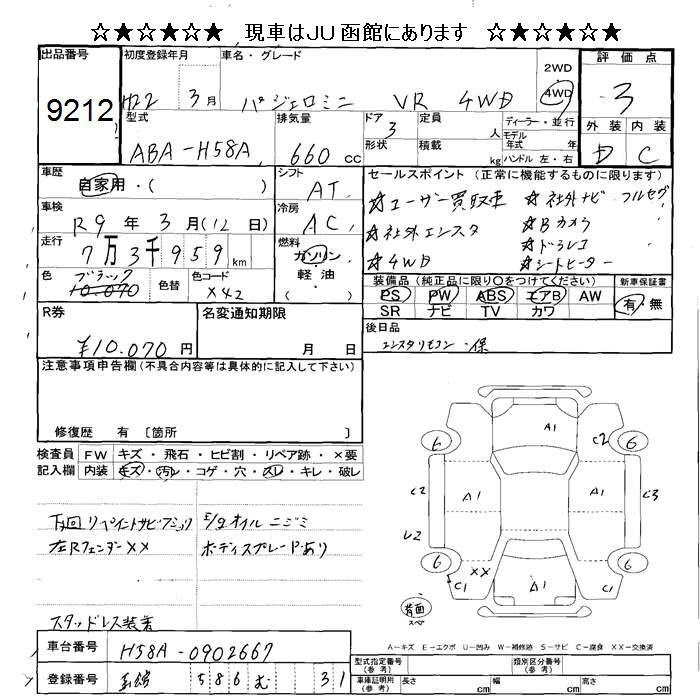 ☆★☆★☆★ 現車はJU函館にあります ☆★☆★☆★
出品番号
9212
初度登録年月
H22 3月
車名・グレード
パジェロミニ VR 4WD
2WD
4WD
評価点
3
外装 内装
D C
型式
ABA-H58A
排気量
660 cc
ドア
3
形状
定員
人
積載
kg
ディーラー・並行
モデル年式 年
ハンドル 左・右
車歴
自家用・( )
シフト
AT
車検
R9年 3月(12日)
冷房
AC
走行
7万3千959km
燃料
ガソリン
軽油
( )
色
ブラック
10.070
色替
色コード
X42
セールスポイント (正常に機能するものに限ります)
☆ユーザー買取車 ☆社外ナビ フルセグ
☆社外エンスタ ☆Bカメラ
☆ドラレコ
☆4WD ☆シートヒーター
装備品 (純正品に限り○をつけてください)
PS PW ABS エアB AW
SR ナビ TV カワ
新車保証書
有 無
R券
¥10.070円
名変通知期限
月 日
後日品
エンスタリモコン・保
注意事項申告欄(不具合内容等は具体的に記入して下さい)
修復歴 有 〔箇所 〕
検査員記入欄
FW キズ・飛石・ヒビ割・リペア跡・×要
内装 キズ・汚れ・コゲ・穴・スレ・キレ・破レ
下回リペイントサビ E/gオイルニジミ
左Rフェンダー××
ボディスプレードあり
スタッドレス装着
A1
C2
6
6
C2
A1
A1
C3
U2
6
6
C1
XX
A1
C1
背面
スペア
A-キズ E-エクボ U-凹み W-補修跡 S-サビ C-腐食 XX-交換済
車台番号
H58A-0902667
登録番号
函館 586 む 31
型式指定番号(参考)
類別区分番号(参考)
車庫証明用(参考)
長さ cm
幅 cm
高さ cm